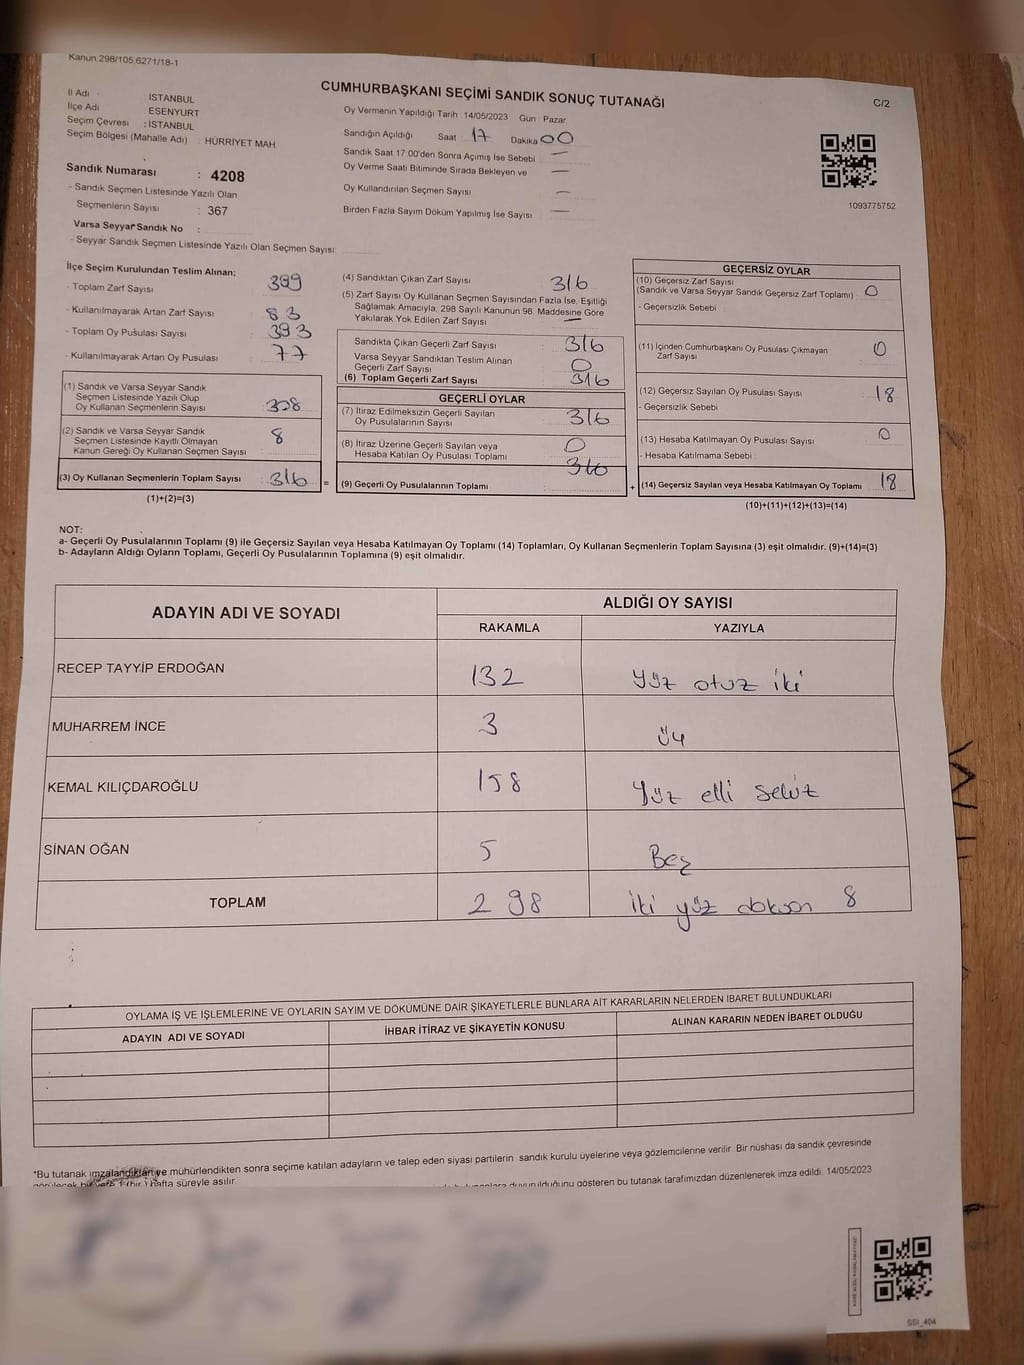 Kanun.298/105,6271/18-1
CUMHURBAŞKANI SEÇİMİ SANDIK SONUÇ TUTANAĞI
C/2
İl Adı : İSTANBUL
İlçe Adı : ESENYURT
Seçim Çevresi : İSTANBUL
Seçim Bölgesi (Mahalle Adı) : HÜRRİYET MAH.
Oy Vermenin Yapıldığı Tarih :14/05/2023 Gün : Pazar
Sandığın Açıldığı Saat 17 Dakika 00
Sandık Saat 17:00'den Sonra Açımış İse Sebebi —
Oy Verme Saati Bitiminde Sırada Bekleyen ve —
Oy Kullandırılan Seçmen Sayısı —
Birden Fazla Sayım Döküm Yapılmış İse Sayısı —
1093775752
Sandık Numarası : 4208
- Sandık Seçmen Listesinde Yazılı Olan
Seçmenlerin Sayısı : 367
Varsa Seyyar Sandık No :
- Seyyar Sandık Seçmen Listesinde Yazılı Olan Seçmen Sayısı:
İlçe Seçim Kurulundan Teslim Alınan;
- Toplam Zarf Sayısı 399
- Kullanılmayarak Artan Zarf Sayısı 83
- Toplam Oy Pusulası Sayısı 393
- Kullanılmayarak Artan Oy Pusulası 77
(1) Sandık ve Varsa Seyyar Sandık
Seçmen Listesinde Yazılı Olup
Oy Kullanan Seçmenlerin Sayısı 308
(2) Sandık ve Varsa Seyyar Sandık
Seçmen Listesinde Kayıtlı Olmayan
Kanun Gereği Oy Kullanan Seçmen Sayısı 8
(3) Oy Kullanan Seçmenlerin Toplam Sayısı 316 =
(1)+(2)=(3)
(4) Sandıktan Çıkan Zarf Sayısı 316
(5) Zarf Sayısı Oy Kullanan Seçmen Sayısından Fazla İse, Eşitliği
Sağlamak Amacıyla; 298 Sayılı Kanunun 98. Maddesine Göre
Yakılarak Yok Edilen Zarf Sayısı —
Sandıkta Çıkan Geçerli Zarf Sayısı : 316
Varsa Seyyar Sandıktan Teslim Alınan
Geçerli Zarf Sayısı : 0
(6) Toplam Geçerli Zarf Sayısı : 316
GEÇERLİ OYLAR
(7) İtiraz Edilmeksizin Geçerli Sayılan
Oy Pusulalarının Sayısı : 316
(8) İtiraz Üzerine Geçerli Sayılan veya
Hesaba Katılan Oy Pusulası Toplamı : 0
(9) Geçerli Oy Pusulalarının Toplamı 316 +
GEÇERSİZ OYLAR
(10) Geçersiz Zarf Sayısı
(Sandık ve Varsa Seyyar Sandık Geçersiz Zarf Toplamı) 0
- Geçersizlik Sebebi :
(11) İçinden Cumhurbaşkanı Oy Pusulası Çıkmayan
Zarf Sayısı 0
(12) Geçersiz Sayılan Oy Pusulası Sayısı 18
- Geçersizlik Sebebi
(13) Hesaba Katılmayan Oy Pusulası Sayısı 0
- Hesaba Katılmama Sebebi :
(14) Geçersiz Sayılan veya Hesaba Katılmayan Oy Toplamı 18
(10)+(11)+(12)+(13)=(14)
NOT:
a- Geçerli Oy Pusulalarının Toplamı (9) ile Geçersiz Sayılan veya Hesaba Katılmayan Oy Toplamı (14) Toplamları, Oy Kullanan Seçmenlerin Toplam Sayısına (3) eşit olmalıdır. (9)+(14)=(3)
b- Adayların Aldığı Oyların Toplamı, Geçerli Oy Pusulalarının Toplamına (9) eşit olmalıdır.
ADAYIN ADI VE SOYADI
ALDIĞI OY SAYISI
RAKAMLA YAZIYLA
RECEP TAYYİP ERDOĞAN 132 Yüz otuz iki
MUHARREM İNCE 3 üç
KEMAL KILIÇDAROĞLU 158 Yüz elli sekiz
SİNAN OĞAN 5 Beş
TOPLAM 298 iki yüz doksan 8
OYLAMA İŞ VE İŞLEMLERİNE VE OYLARIN SAYIM VE DÖKÜMÜNE DAİR ŞİKAYETLERLE BUNLARA AİT KARARLARIN NELERDEN İBARET BULUNDUKLARI
ADAYIN ADI VE SOYADI İHBAR İTİRAZ VE ŞİKAYETİN KONUSU ALINAN KARARIN NEDEN İBARET OLDUĞU
*Bu tutanak imzalandıktan ve mühürlendikten sonra seçime katılan adayların ve talep eden siyasi partilerin sandık kurulu üyelerine veya gözlemcilerine verilir. Bir nüshası da sandık çevresinde
görülecek bir yere 1 (bir) hafta süreyle asılır. duyurulduğunu gösteren bu tutanak tarafımızdan düzenlenerek imza edildi. 14/05/2023
SSI_404